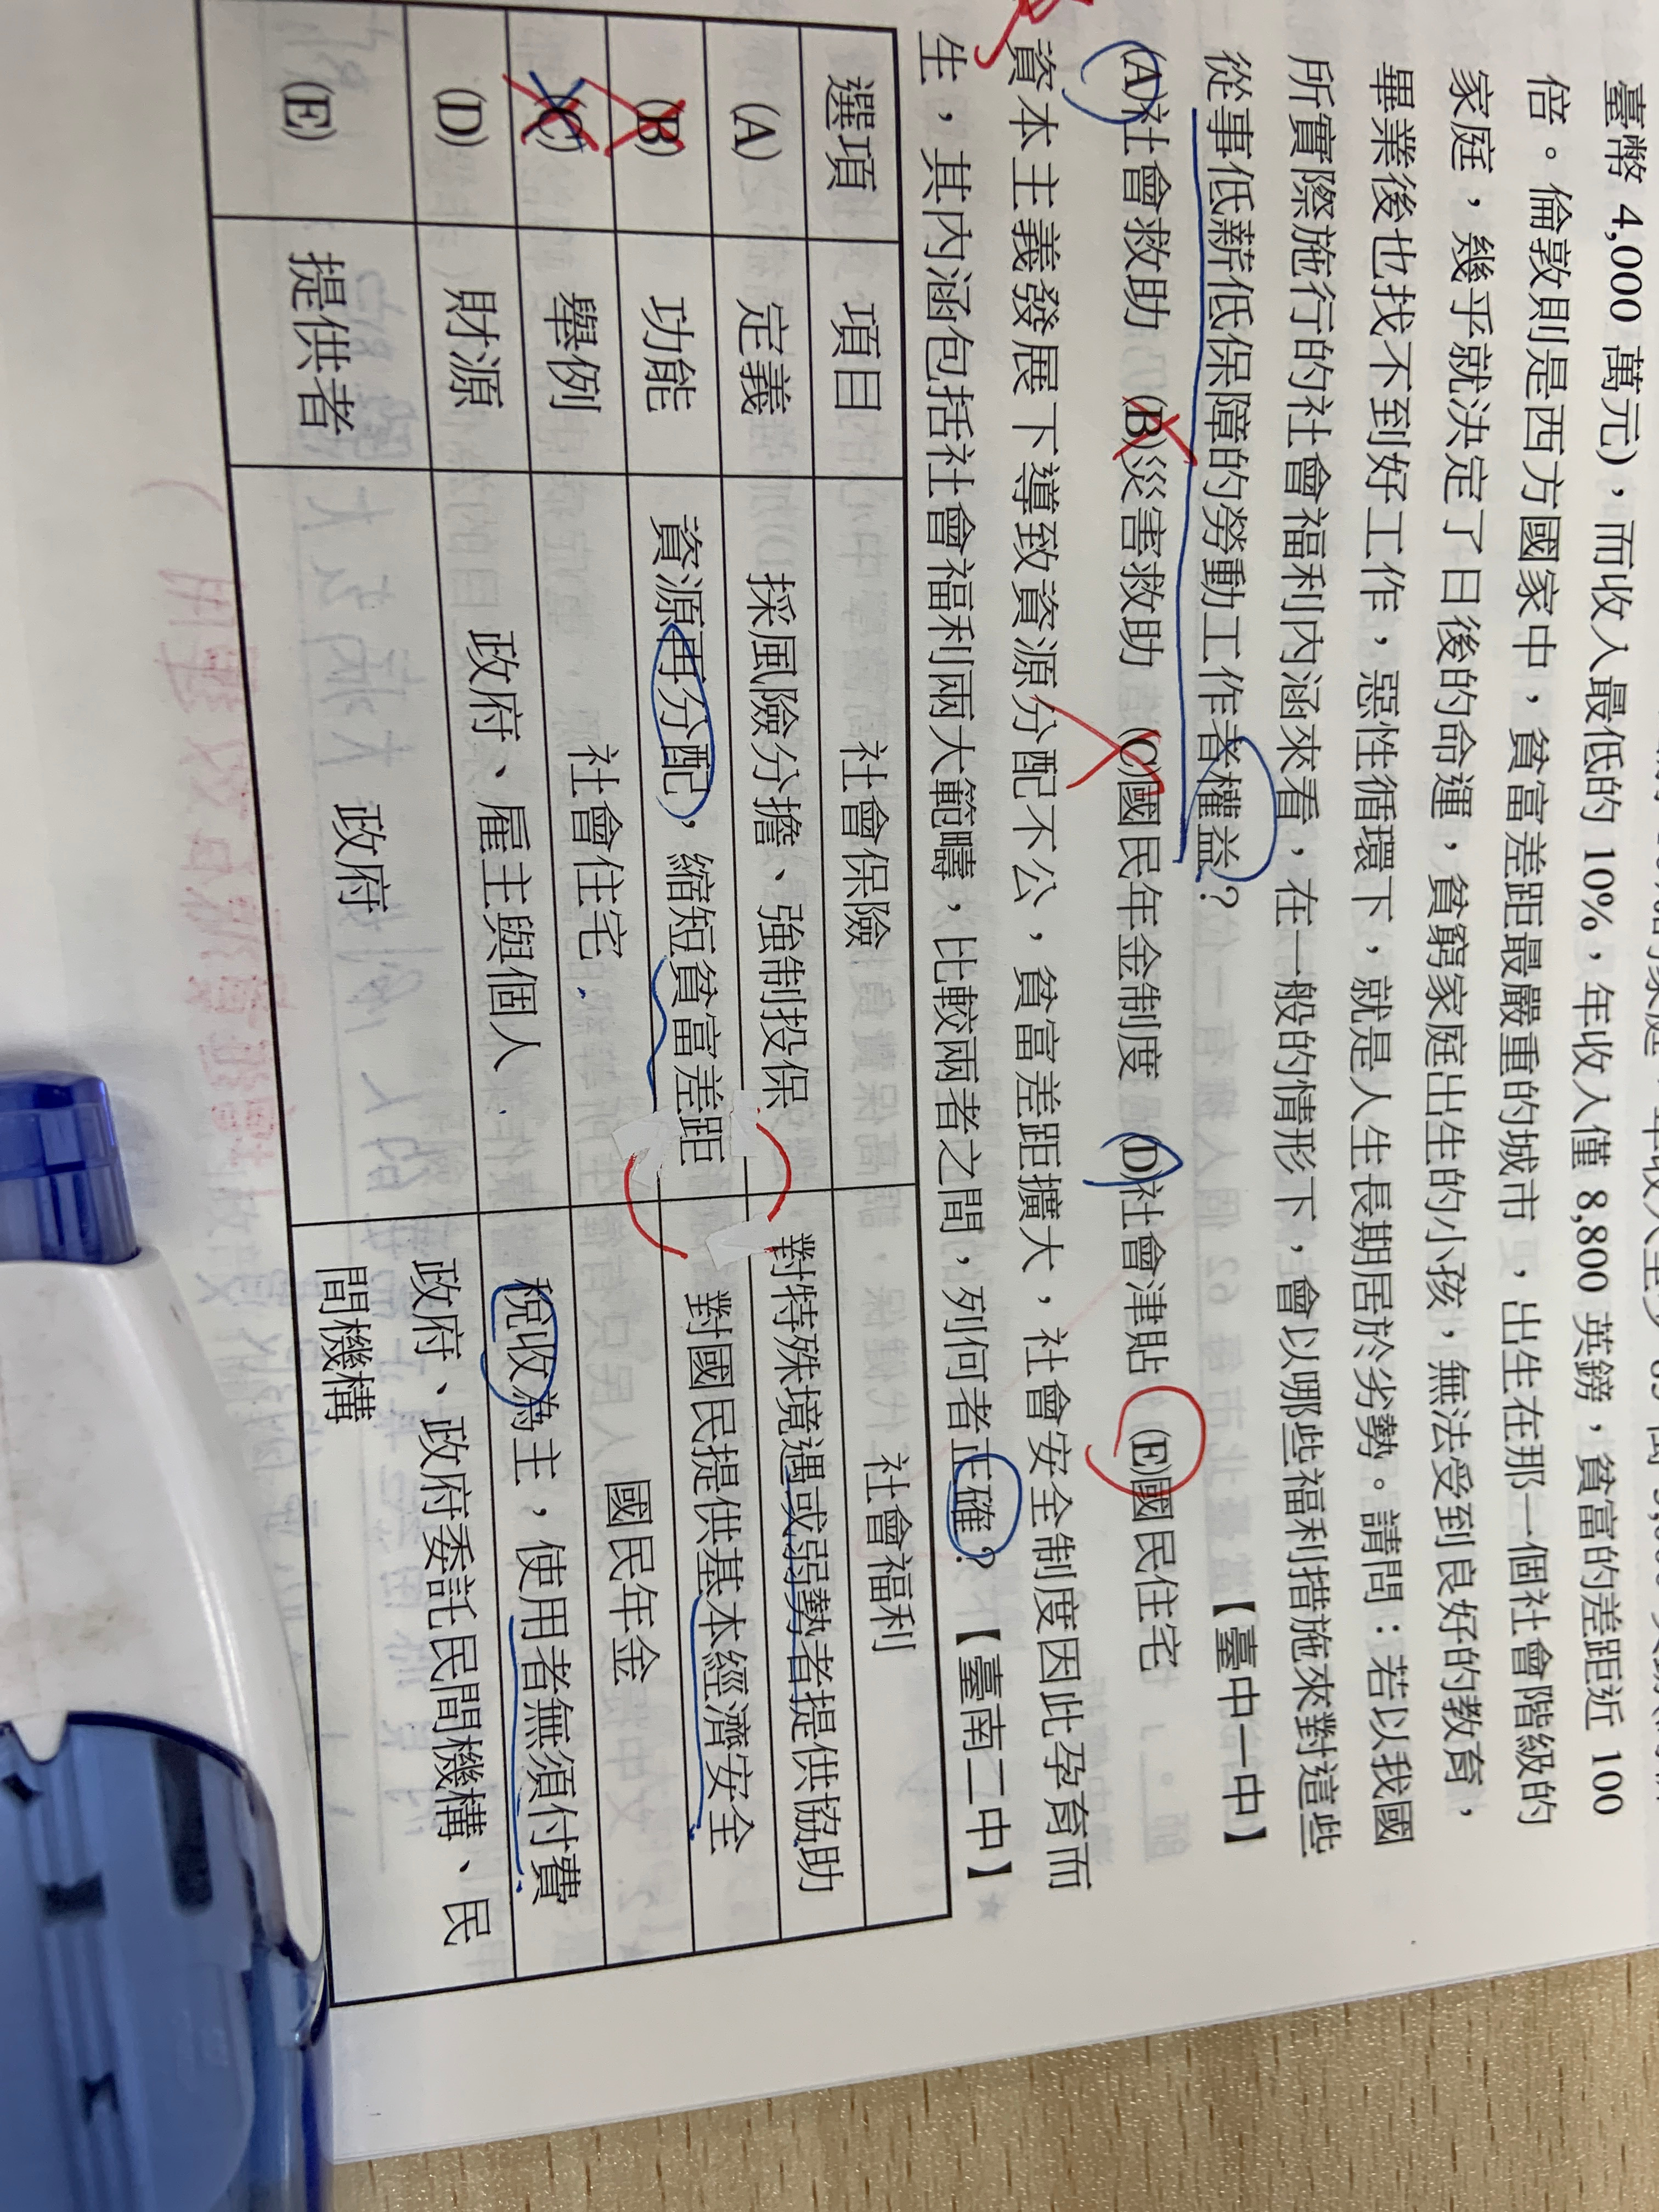 臺幣 4,000 萬元)，而收入最低的 10%，年收入僅 8,800 英鎊，貧富的差距近 100
倍。倫敦則是西方國家中，貧富差距最嚴重的城市，出生在那一個社會階級的
家庭，幾乎就決定了日後的命運，貧窮家庭出生的小孩，無法受到良好的教育，
畢業後也找不到好工作，惡性循環下，就是人生長期居於劣勢。請問：若以我國
所實際施行的社會福利內涵來看，在一般的情形下，會以哪些福利措施來對這些
從事低薪低保障的勞動工作者權益？【臺中一中】
(A)社會救助 (B)災害救助 (C)國民年金制度 (D)社會津貼 (E)國民住宅
資本主義發展下導致資源分配不公，貧富差距擴大，社會安全制度因此孕育而
生，其內涵包括社會福利兩大範疇，比較兩者之間，列何者正確？【臺南二中】
選項 項目 社會保險 社會福利
(A) 定義 採風險分擔、強制投保 對特殊境遇或弱勢者提供協助
(B) 功能 資源再分配，縮短貧富差距 對國民提供基本經濟安全
(C) 舉例 社會住宅 國民年金
(D) 財源 政府、雇主與個人 稅收為主，使用者無須付費
(E) 提供者 政府 政府、政府委託民間機構、民
間機構